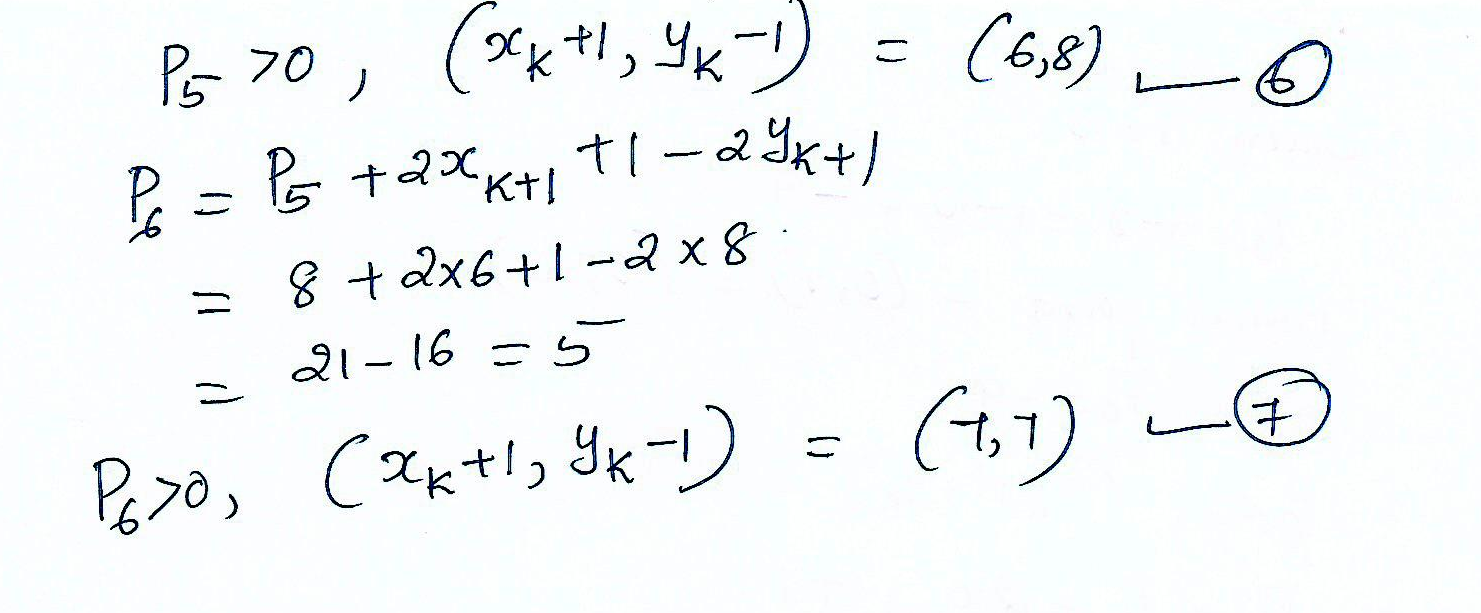 P₅ >0, (xₖ+1, yₖ-1) = (6,8) — ⑥
P₆ = P₅ + 2xₖ₊₁ +1 - 2yₖ₊₁
= 8 + 2x6+1-2x8
= 21-16 = 5
P₆>0, (xₖ+1, yₖ-1) = (7,7) — ⑦